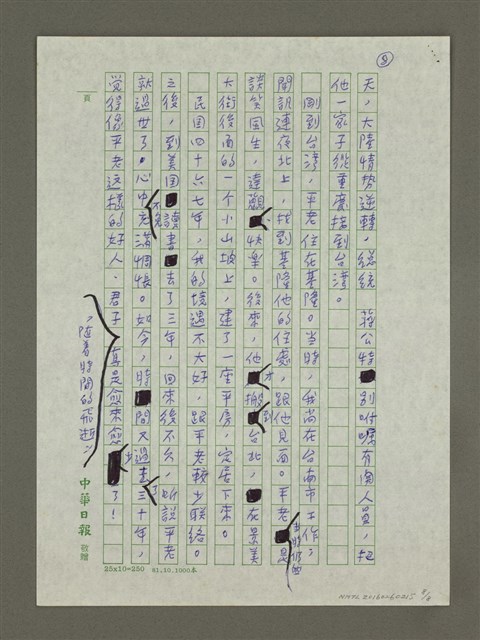 ⑧
天,大陸情勢逆轉,總統 蔣公特別吩囑有関人員,把
他一家子從重慶接到台灣。
剛到台灣,平老住在基隆。当時,我尚在台南市工作;
聞訊連夜北上,找到基隆他的住處,跟他見面。平老還是
談笑風生,達觀、快樂。後來,他才搬到台北,在景美
大街後面的一个小山坡上,建了一座平房,定居下來。
民国四十六七年,我的境遇不大好,跟平老較少联絡。
之後,到美国讀書去了三年,回來後不久,听說平老
就過世了。心中不免充滿惆悵。如今,時間又過去了三十年,
觉得像平老这樣的好人、君子,隨着時間的飛逝,真是愈來愈少了!
頁
中華日報 敬贈
25x10=250 81.10.1000本